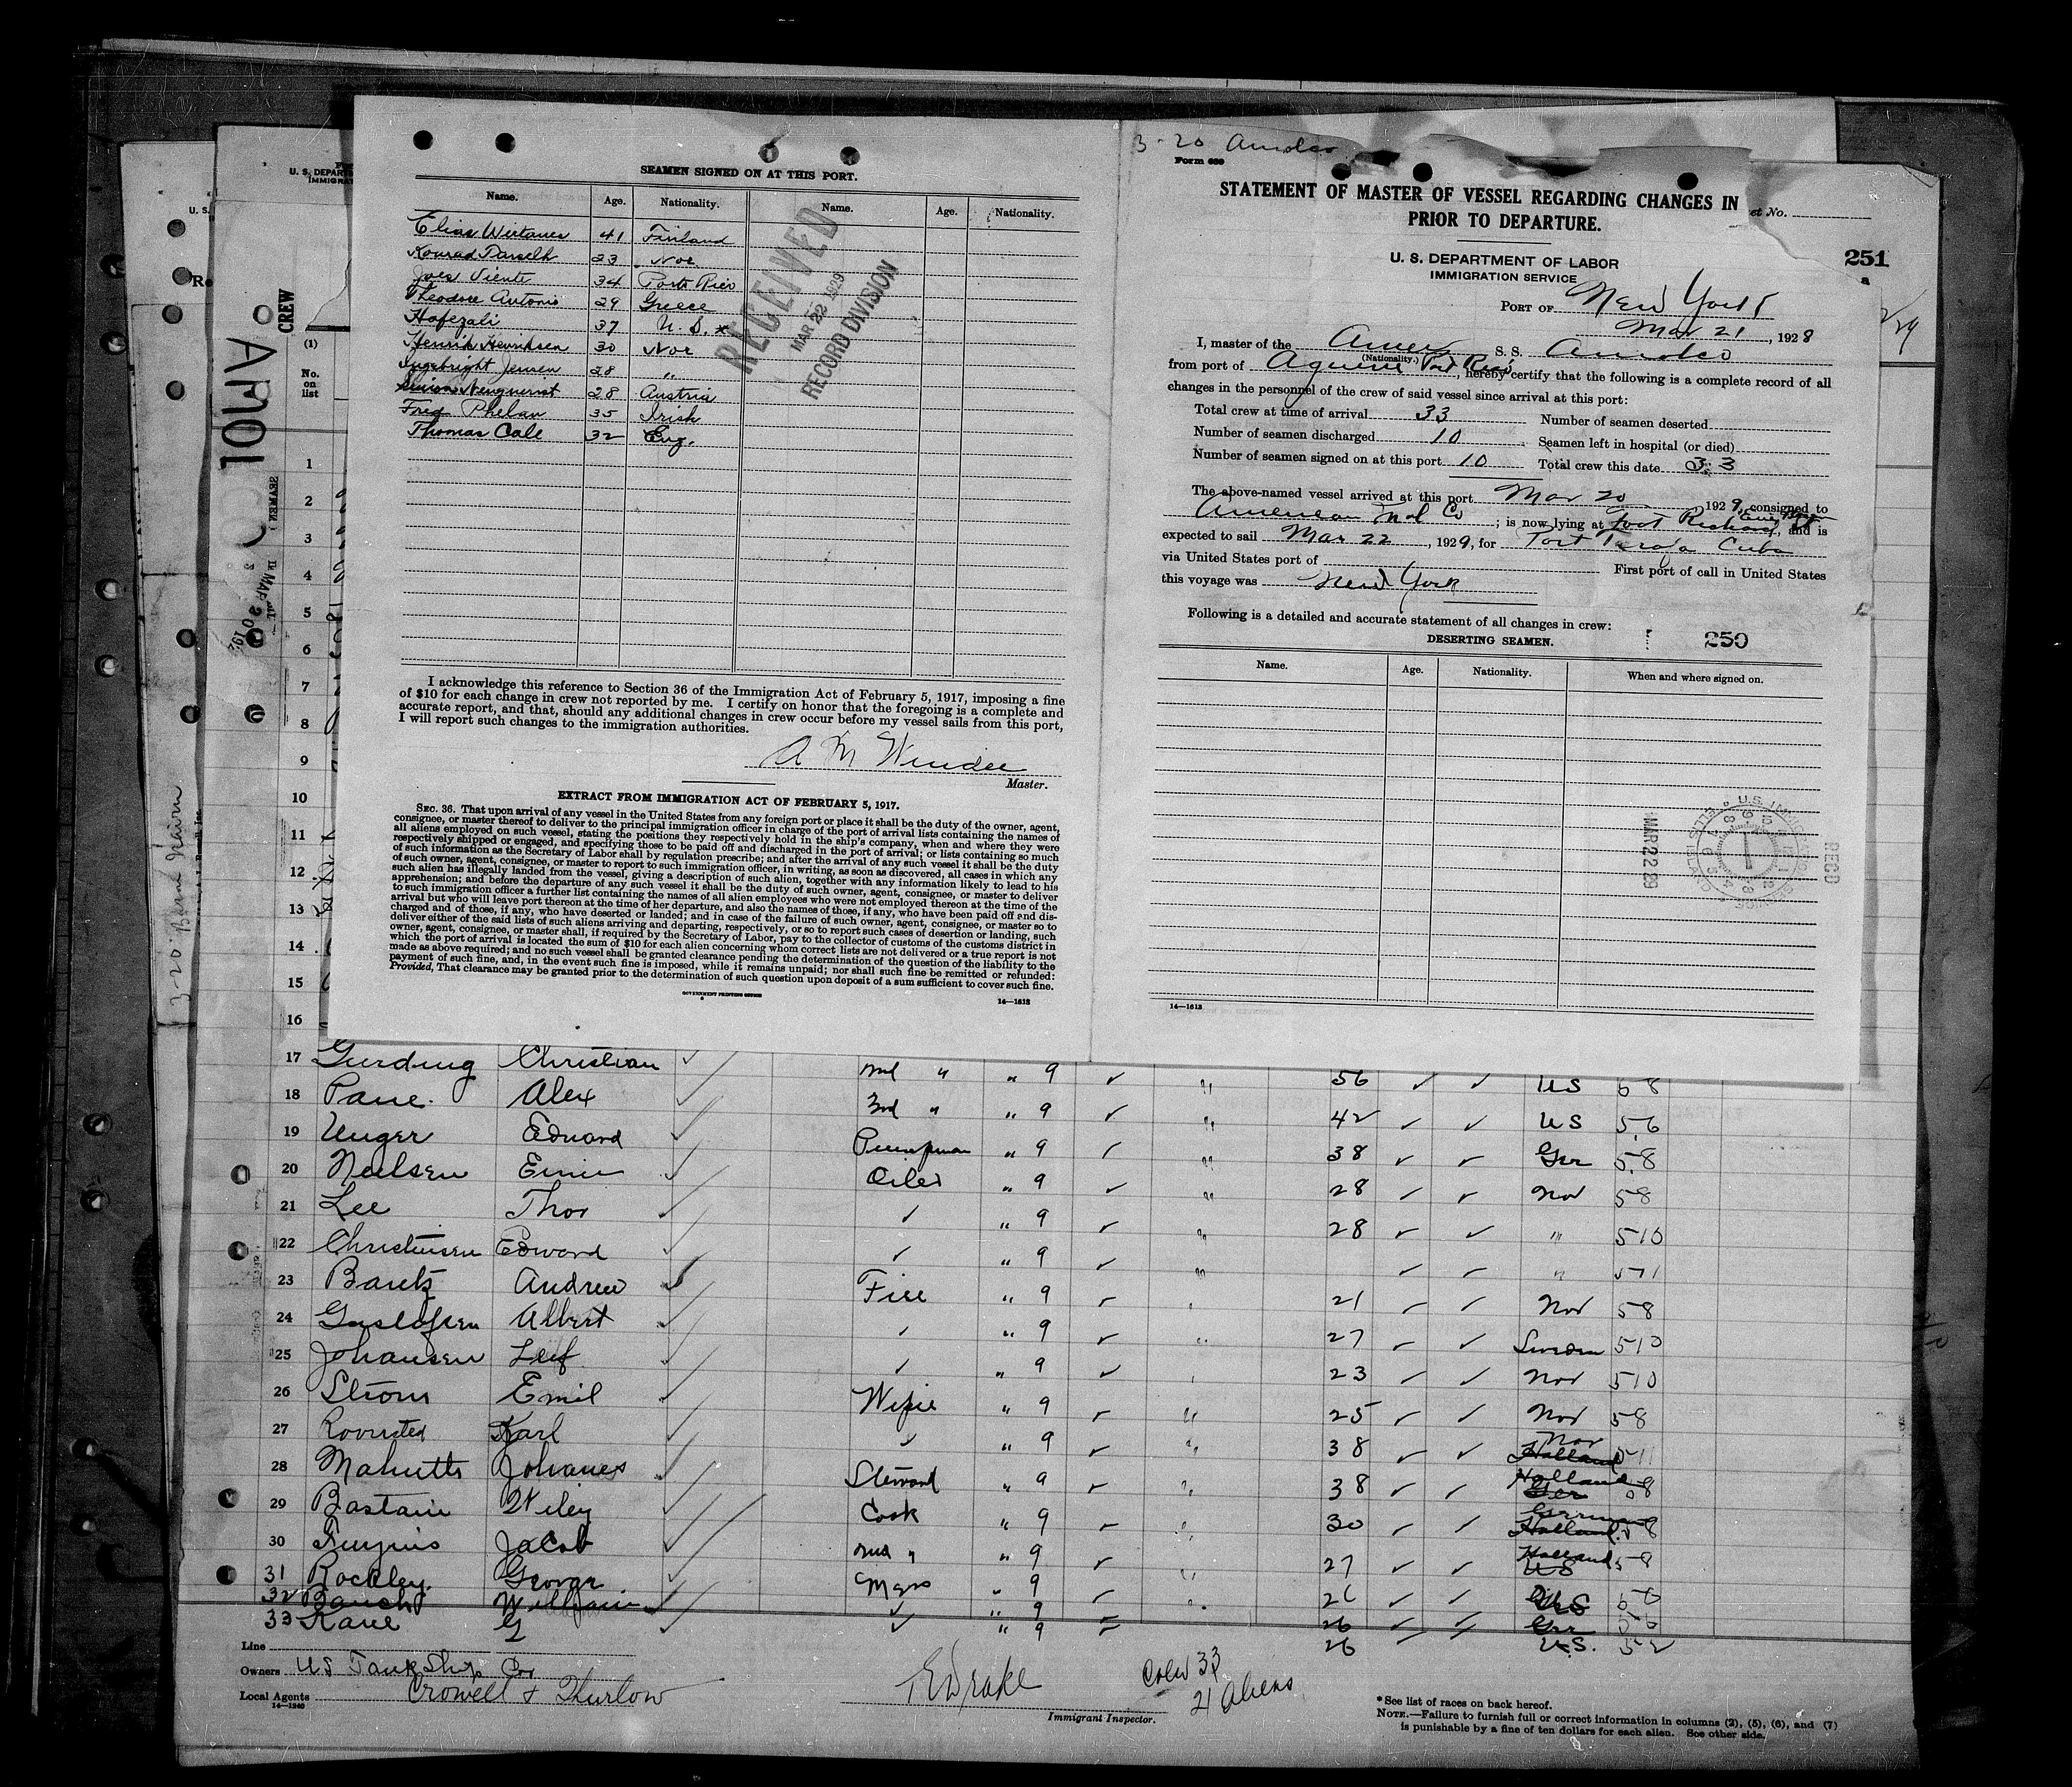 SEAMEN SIGNED ON AT THIS PORT.
Name. Age. Nationality. Name. Age. Nationality.
Elias Wirtanen 41 Finland
Konrad 23 Nor
Viente 34 Porto Rico
Theodore Antonio 29 Greece
Hafezali 37 U. S. x
Henrik Henriksen 30 Nor
Ingebright Jensen 28 "
28 Austria
Fred Phelan 35 Irish
Thomas Cale 32 Eng.
RECEIVED
MAR 22 1929
RECORD DIVISION
I acknowledge this reference to Section 36 of the Immigration Act of February 5, 1917, imposing a fine
of $10 for each change in crew not reported by me. I certify on honor that the foregoing is a complete and
accurate report, and that, should any additional changes in crew occur before my vessel sails from this port,
I will report such changes to the immigration authorities.
A M
Master.
EXTRACT FROM IMMIGRATION ACT OF FEBRUARY 5, 1917.
SEC. 36. That upon arrival of any vessel in the United States from any foreign port or place it shall be the duty of the owner, agent,
consignee, or master thereof to deliver to the principal immigration officer in charge of the port of arrival lists containing the names of
all aliens employed on such vessel, stating the positions they respectively hold in the ship's company, when and where they were
respectively shipped or engaged, and specifying those to be paid off and discharged in the port of arrival; or lists containing so much
of such information as the Secretary of Labor shall by regulation prescribe; and after the arrival of any such vessel it shall be the duty
of such owner, agent, consignee, or master to report to such immigration officer, in writing, as soon as discovered, all cases in which any
such alien has illegally landed from the vessel, giving a description of such alien, together with any information likely to lead to his
apprehension; and before the departure of any such vessel it shall be the duty of such owner, agent, consignee, or master to deliver
to such immigration officer a further list containing the names of all alien employees who were not employed thereon at the time of the
arrival but who will leave port thereon at the time of her departure, and also the names of those, if any, who have been paid off and dis-
charged and of those, if any, who have deserted or landed; and in case of the failure of such owner, agent, consignee, or master so to
deliver either of the said lists of such aliens arriving and departing, respectively, or so to report such cases of desertion or landing, such
owner, agent, consignee, or master shall, if required by the Secretary of Labor, pay to the collector of customs of the customs district in
which the port of arrival is located the sum of $10 for each alien concerning whom correct lists are not delivered or a true report is not
made as above required; and no such vessel shall be granted clearance pending the determination of the question of the liability to the
payment of such fine, and, in the event such fine is imposed, while it remains unpaid; nor shall such fine be remitted or refunded:
Provided, That clearance may be granted prior to the determination of such question upon deposit of a sum sufficient to cover such fine.
GOVERNMENT PRINTING OFFICE
14—1613
3-20 Amolco
Form 689
STATEMENT OF MASTER OF VESSEL REGARDING CHANGES IN
PRIOR TO DEPARTURE.
et No.
251
U. S. DEPARTMENT OF LABOR
IMMIGRATION SERVICE
PORT OF New York
Mar 21, 1928
I, master of the Amer S. S. Amolco
(Nationality.)
from port of Aguirre Port Rico, hereby certify that the following is a complete record of all
changes in the personnel of the crew of said vessel since arrival at this port:
Total crew at time of arrival 33 Number of seamen deserted
Number of seamen discharged 10 Seamen left in hospital (or died)
Number of seamen signed on at this port 10 Total crew this date 33
The above-named vessel arrived at this port Mar 20 1929, consigned to
American Mol Co; is now lying at Port Richmond, and is
expected to sail Mar 22, 1929, for Port Cuba
via United States port of First port of call in United States
this voyage was New York
Following is a detailed and accurate statement of all changes in crew:
DESERTING SEAMEN. 250
Name. Age. Nationality. When and where signed on.
RECD
MAR 22 29
14—1613
CREW
(1)
No.
on
list
1
2
3
4
5
6
7
8
9
10
11
12
13
14
15
16
17 Gurding Christian 2nd " " 9 " 56 US 5 8
18 Pane Alex 3rd " " 9 " 42 US 5 6
19 Unger Edward Pumpman " 9 " 38 Ger 5 8
20 Neilsen Oiler " 9 " 28 Nor 5 8
21 Lee Thor " 9 " 28 " 5 10
22 Christensen Edward " 9 " "
23 Andrew Fire " 9 21 Nor 5 8
24 Gustafsen Albert " 9 " 27 Sweden 5 10
25 Johansen Leif " 9 23 Nor 5 10
26 Strom Emil Wiper " 9 " 25 Nor 5 8
27 Karl " 9 " 38 Nor Holland 5 11
28 Johanes Steward " 9 " 38 Holland Ger 8
29 Bastain Wiley Cook " 9 30 Germany Holland 8
30 Jacob 2nd " " 9 27 Holland US 5 8
31 Rockley George Mess " 9 US
32 William " 9 26 Ger
33 Kane G " 9 26 U.S. 5 2
Line
Owners US Tank Ship Cor
Local Agents Crowell & Thurlow
14—1240
E Drake
Immigrant Inspector.
Crew 33
21 Aliens
* See list of races on back hereof.
NOTE.—Failure to furnish full or correct information in columns (2), (5), (6), and (7)
is punishable by a fine of ten dollars for each alien. See other side.